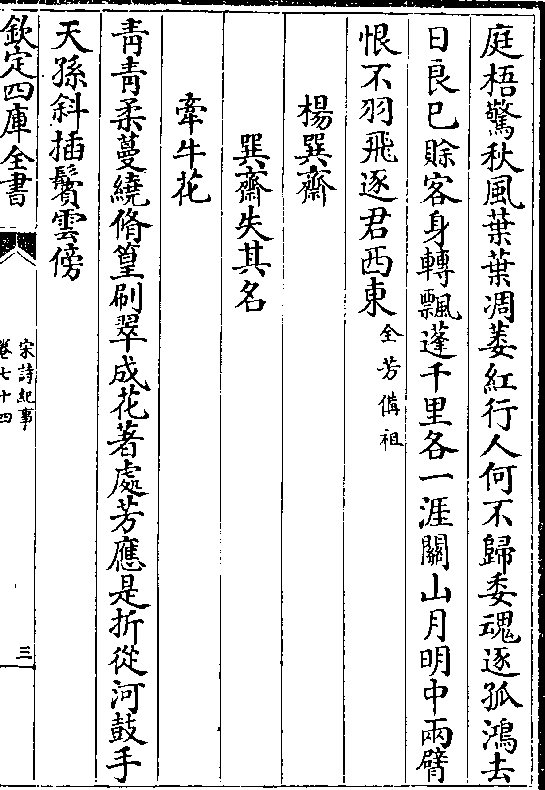 庭梧驚秋風葉葉凋萎紅行人何不歸委魂逐孤鴻去
日良已賒客身轉飄蓬千里各一涯關山月明中兩臂
恨不羽飛逐君西東全芳備祖
楊巽齋
巽齋失其名
牽牛花
青青柔蔓繞脩篁刷翠成花著處芳應是折從河鼓手
天孫斜插鬢雲傍
欽定四庫全書
宋詩紀事
卷七十四
三